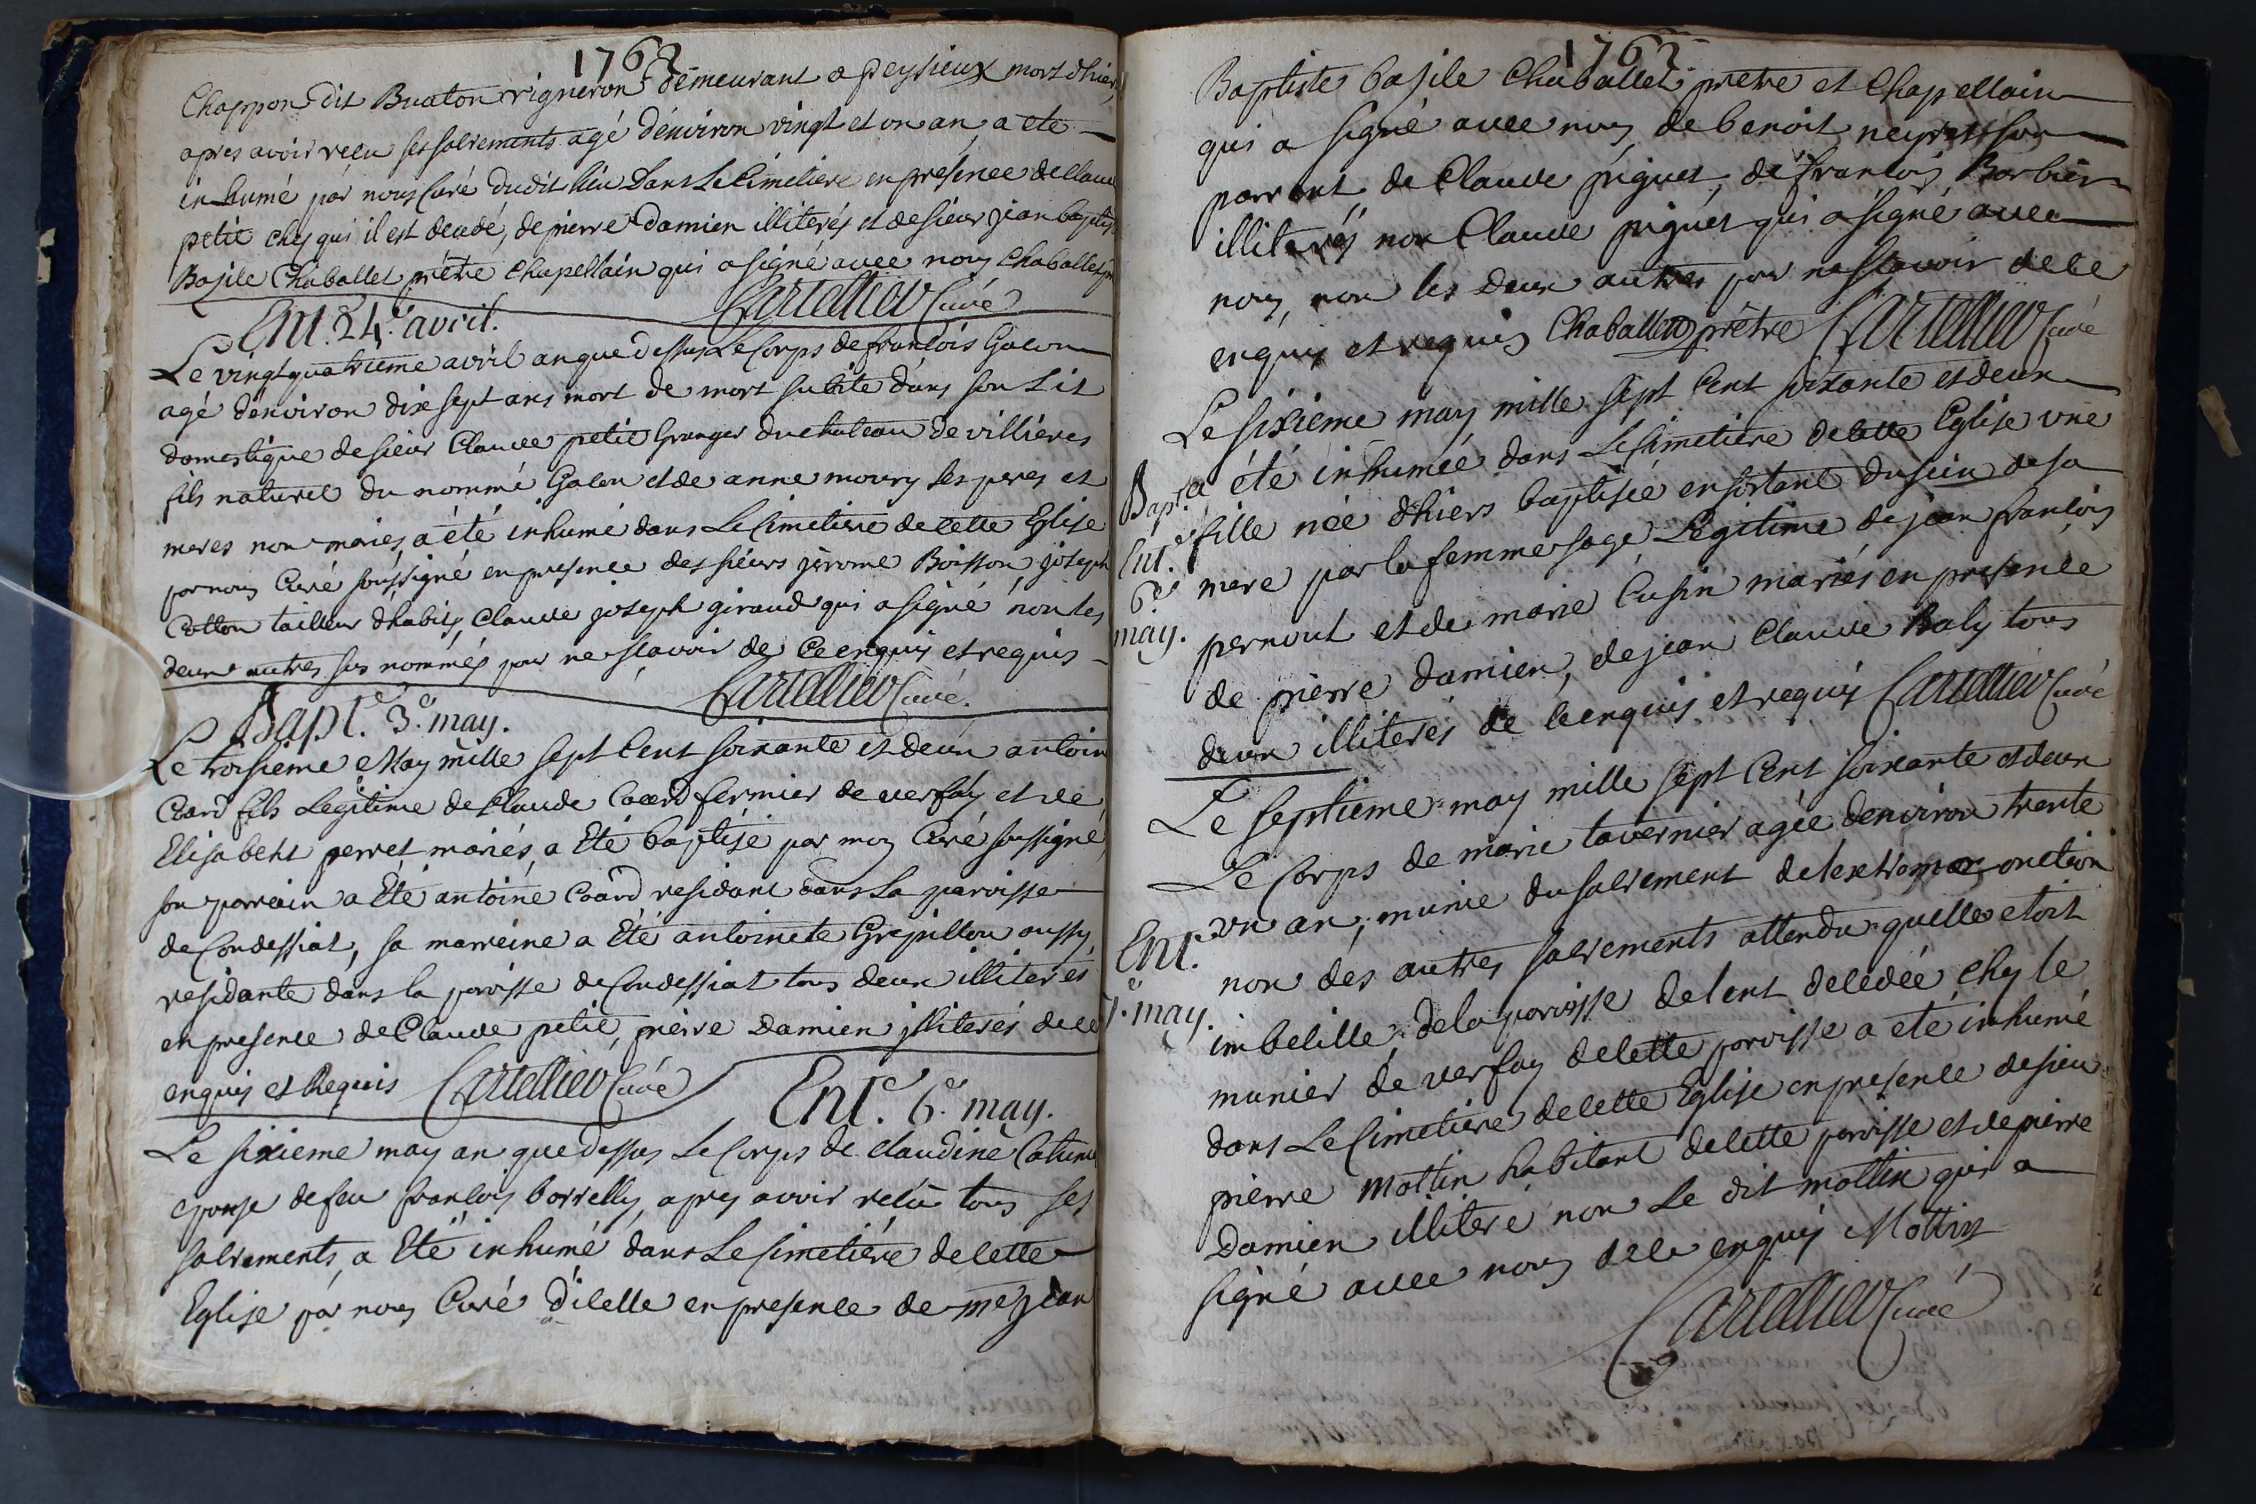 1762
Chappon dit Buaton vigneron demeurant a peysieux mort dhier,
apres avoir reçu ses sacrements agé denviron vingt et un an, a ete
inhumé par nous Curé dudit lieu dans Le Cimetiere en presence de Claude
petit chés qui il est decedé, de pierre Damien illiterés et de sieur jean baptiste
Basile Chaballet prêtre Chapellain qui a signé avec nous Chaballet ptre
Cartellier Curé
Ent. 24.e avril.
Le vingt quatrieme avril an que dessus Le Corps de françois Galon
agé denviron dix sept ans mort de mort subite dans son Lit
domestique de sieur Claude petit Granger du chateau de villieres
fils naturel du nommé Galon et de anne moury ses peres et
meres non mariés, a été inhumé dans Le Cimetiere de cette Eglise
par nous Curé soussigné en presence des sieurs jerome Boisson, joseph
Cotton tailleur dhabits, Claude joseph giraud qui a signé non les
deux autres sus nommés pour ne sçavoir de ce enquis et requis
Cartellier Curé.
Bapt.e 3.e may.
Le troisieme May mille sept Cent soixante et deux antoine
Coard fils Legitime de Claude Coard fermier de verfay et de
Elisabeht perret mariés, a Eté baptisé par moy Curé sussigné,
son parrein a Eté antoine Coard residant dans La paroisse
de Condessiat, sa marreine a Eté antoinete Grepillon aussy
residante dans la paroisse de Condessiat tous deux illiterés
en presence de Claude petit, pierre Damien illiterés de ce
enquis et Requis Cartellier Curé
Ent.e 6.e may.
Le sixieme may an que dessus Le Corps de Claudine
epouse de feu françois borrelly, apres avoir reçu tous ses
sacrements, a Eté inhumé dans Le Cimetiére de cette
Eglise par nous Curé dicelle en presence de me jean
1762
Baptiste basile Chaballet prêtre et Chapellain
qui a signé avec nous, de benoit neyret son
parrent, de Claude piguet, de françois Barbier
illiterés non Claude piguet qui a signé avec
nous, non les deux autres pour ne sçavoir de ce
enquis et requis Chaballet prêtre Cartellier Curé
Le sixieme may mille sept Cent soixante et deux
a été inhumée dans Le Cimetiere de cette Eglise une
Bapt.e
fille née dhiers baptisée en sortant du sein de sa
Ent.e
mere par la femme sage Legitime de jean françois
6.e
may.
pernout et de marie Cusin mariés en presence
de pierre Damien, de jean Claude Baly tous
deux illiterés de ce enquis et requis Cartellier Curé
Le septieme may mille sept Cent soixante et deux
Le Corps de marie tavernier agée denviron trente
un an, munie du sacrement de lextrome onction
Ent.
non des autres sacrements attendu quelle etoit
7.e may.
imbecille, de la paroisse de lent decedée chy le
munier de verfay de cette paroisse a eté inhumé
dans Le Cimetiére de cette Eglise en presence de sieur
pierre Mottin habitant de cette paroisse et de pierre
Damien illiteré non Le dit mottin qui a
signé avec nous de ce enquis Mottin
Cartellier Curé